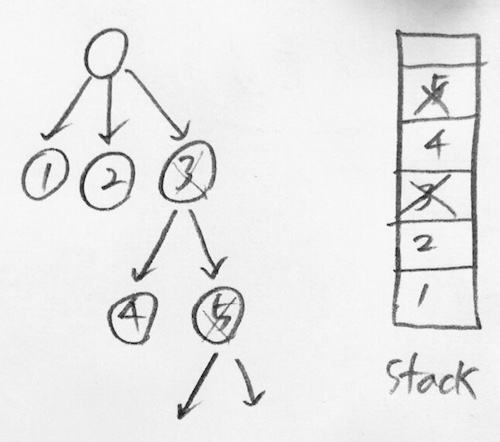 1 2 3
4 5
5
4
3
2
1
Stack